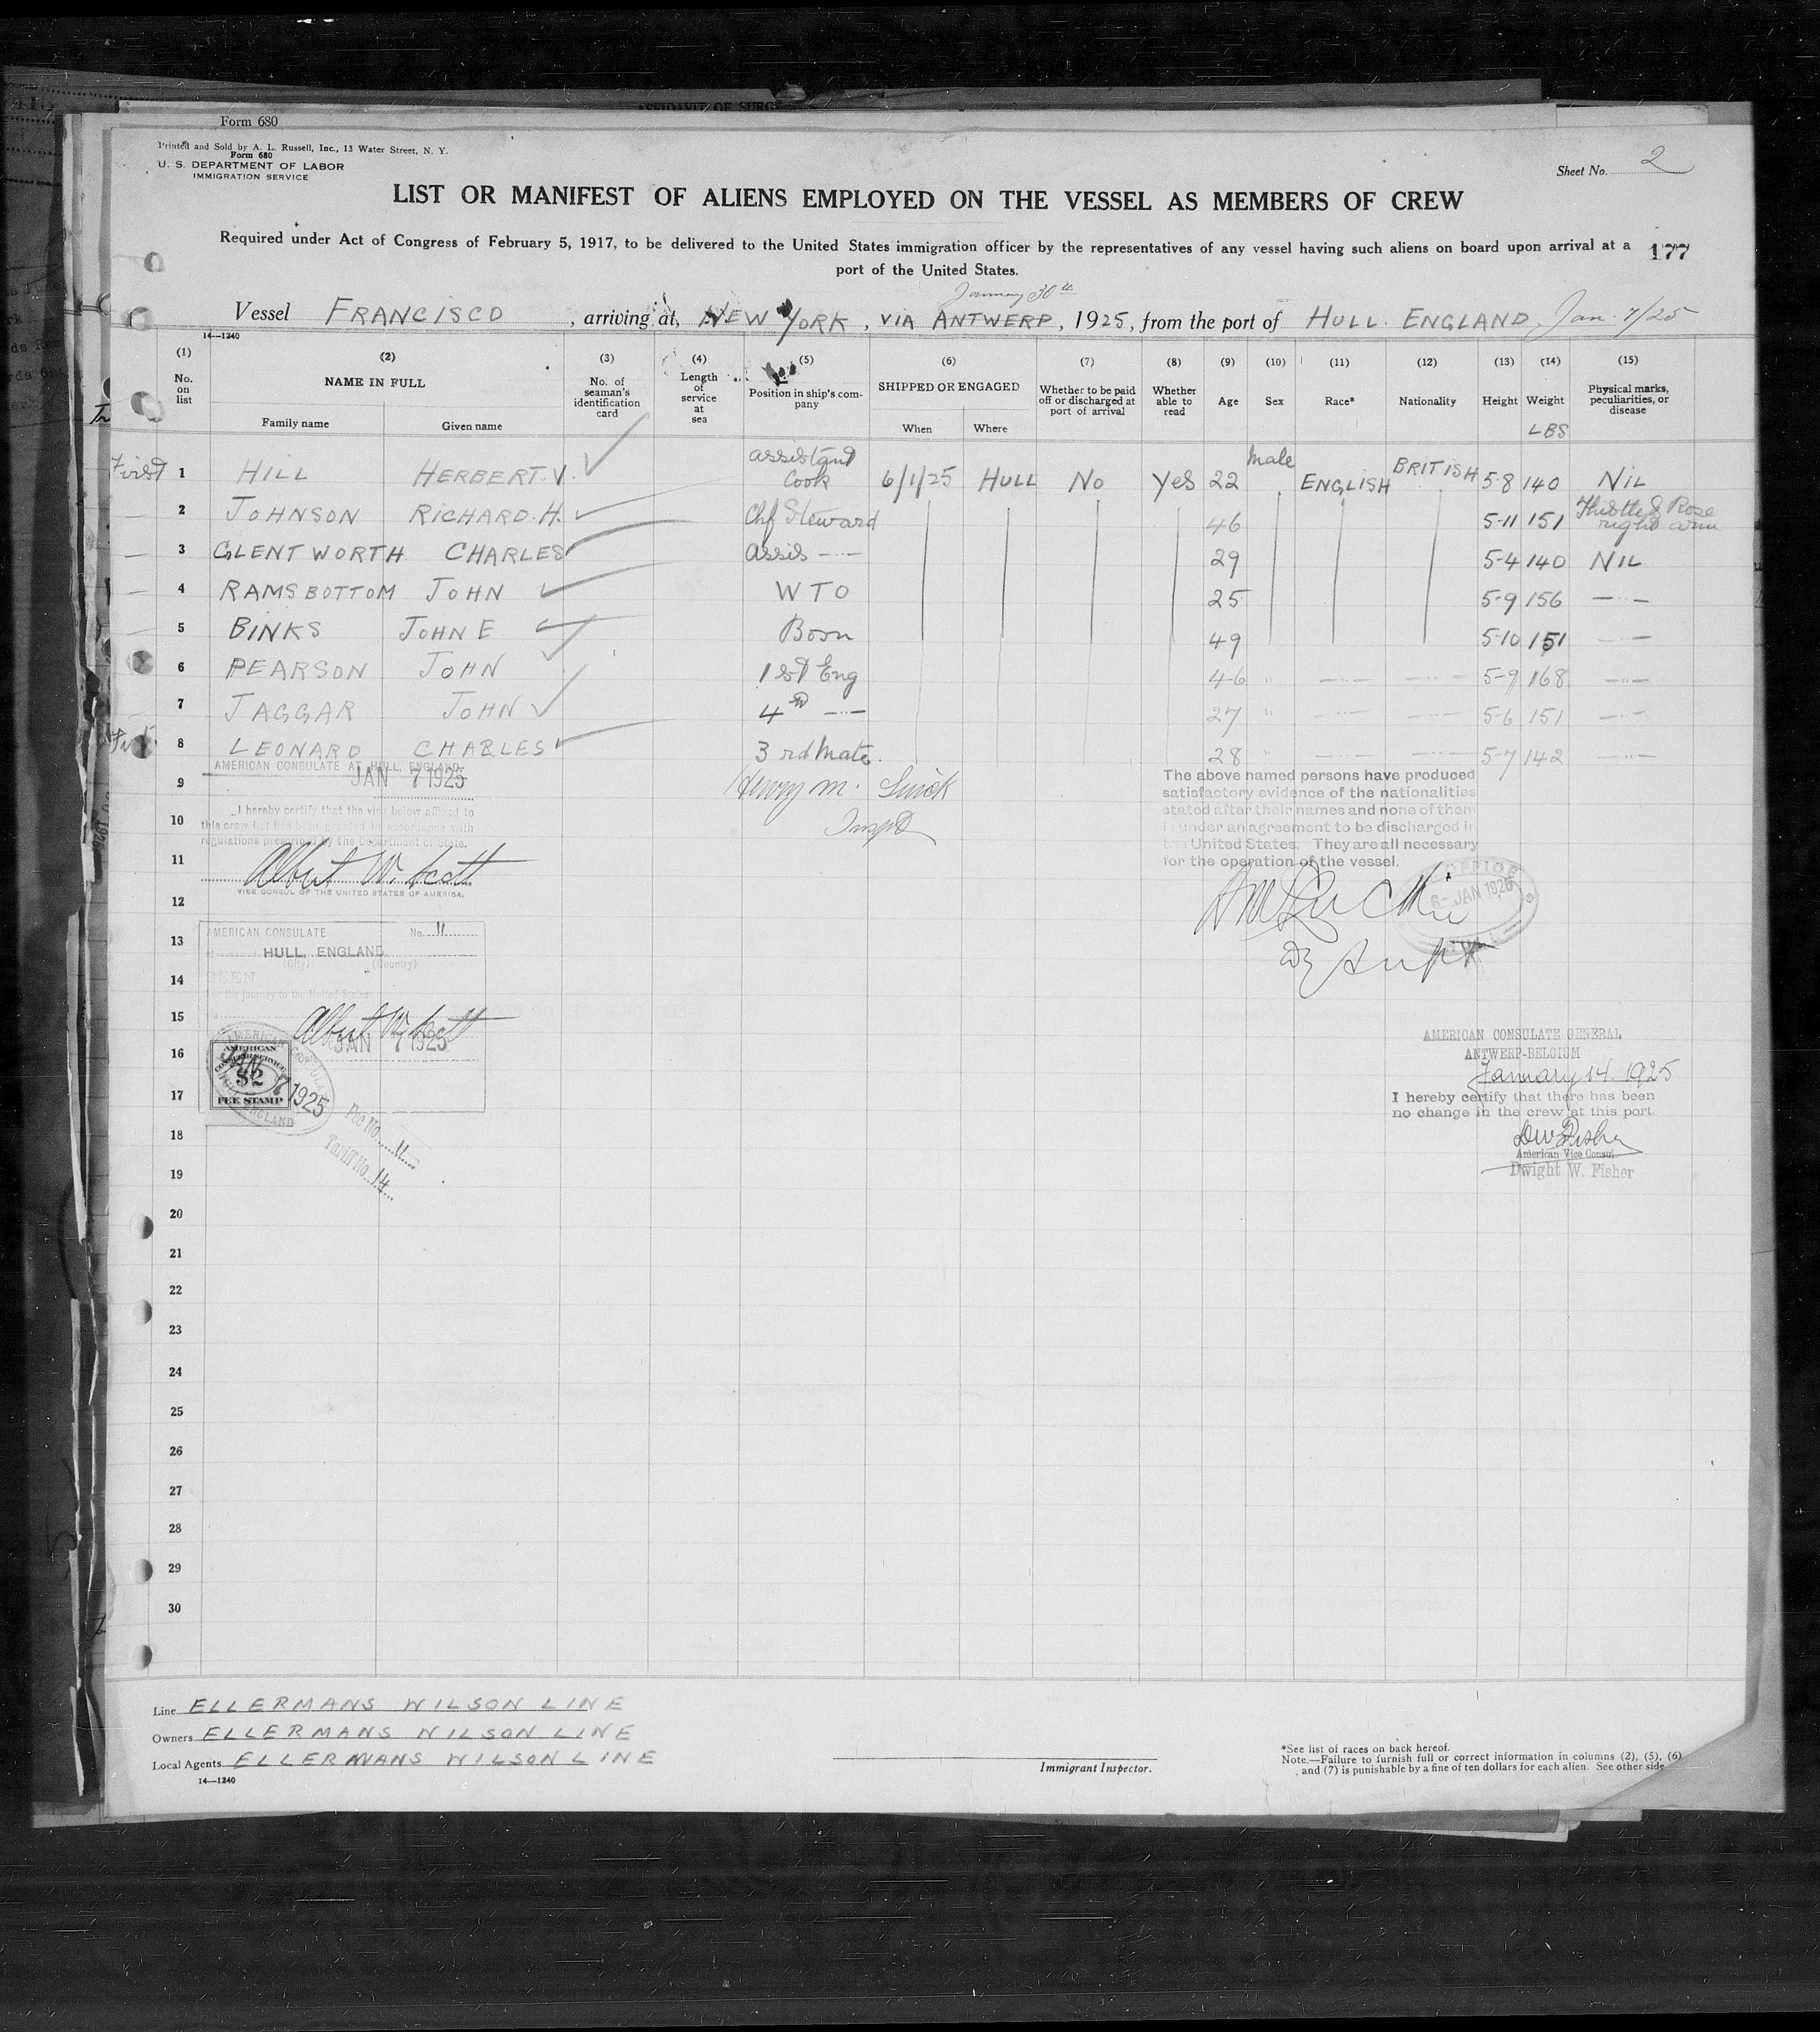 AFFIDAVIT OF SURG
Form 680
Printed and Sold by A. L. Russell, Inc., 13 Water Street, N. Y.
Form 680
U. S. DEPARTMENT OF LABOR
IMMIGRATION SERVICE
Sheet No. 2
LIST OR MANIFEST OF ALIENS EMPLOYED ON THE VESSEL AS MEMBERS OF CREW
Required under Act of Congress of February 5, 1917, to be delivered to the United States immigration officer by the representatives of any vessel having such aliens on board upon arrival at a
port of the United States.
177
January 30th
Vessel FRANCISCO, arriving at, NEW YORK, VIA ANTWERP, 1925, from the port of HULL. ENGLAND, Jan. 7/25
14—1240
(1) (2) (3) (4) (5) (6) (7) (8) (9) (10) (11) (12) (13) (14) (15)
No. on list
NAME IN FULL
Family name Given name
No. of seaman's identification card
Length of service at sea
Position in ship's company
SHIPPED OR ENGAGED
When Where
Whether to be paid off or discharged at port of arrival
Whether able to read
Age Sex Race* Nationality Height Weight
LBS
Physical marks, peculiarities, or disease
First 1 HILL HERBERT. V. assistant Cook 6/1/25 HULL No Yes 22 Male ENGLISH BRITISH 5-8 140 NIL
— 2 JOHNSON RICHARD. H. Chf Steward 46 5-11 151 Thistle & Rose right arm
— 3 GLENTWORTH CHARLES assis —··— 29 5-4 140 NIL
— 4 RAMSBOTTOM JOHN WTO 25 5-9 156 —··—
— 5 BINKS JOHN E Bosn 49 5-10 151 —··—
6 PEARSON JOHN 1st Eng 46 " —··— —··— 5-9 168 —··—
7 JAGGAR JOHN 4th —··— 27 " —··— —··— 5-6 151 —··—
8 LEONARD CHARLES 3rd Mate. 28 " —··— —··— 5-7 142 —··—
AMERICAN CONSULATE AT HULL, ENGLAND,
JAN 7 1925
9
Henry M.
I hereby certify that the visa below affixed to
this crew list has been granted in accordance with
regulations prescribed by the Department of State.
10
Inspt
11
Albert W. Scott
VICE CONSUL OF THE UNITED STATES OF AMERICA.
12
The above named persons have produced
satisfactory evidence of the nationalities
stated after their names and none of them
is under an agreement to be discharged in
the United States. They are all necessary
for the operation of the vessel.
OFFICE
6- JAN 1925
Dy Supt
AMERICAN CONSULATE No. 11
13
HULL, ENGLAND
(City) (Country)
14
SEEN
For the journey to the United States
15
Albert W. Scott
JAN 7 1925
16
AMERICAN
CONSULAR SERVICE
$2
FEE STAMP
JAN 7 1925
ENGLAND
17
Fee No. 11
Tariff No. 14
AMERICAN CONSULATE GENERAL
ANTWERP-BELGIUM
January 14. 1925
I hereby certify that there has been
no change in the crew at this port
DW Fisher
American Vice Consul.
Dwight W. Fisher
18
19
20
21
22
23
24
25
26
27
28
29
30
Line ELLERMANS WILSON LINE
Owners ELLERMANS WILSON LINE
Local Agents ELLERMANS WILSON LINE
14—1240
Immigrant Inspector.
*See list of races on back hereof.
Note.—Failure to furnish full or correct information in columns (2), (5), (6)
and (7) is punishable by a fine of ten dollars for each alien. See other side